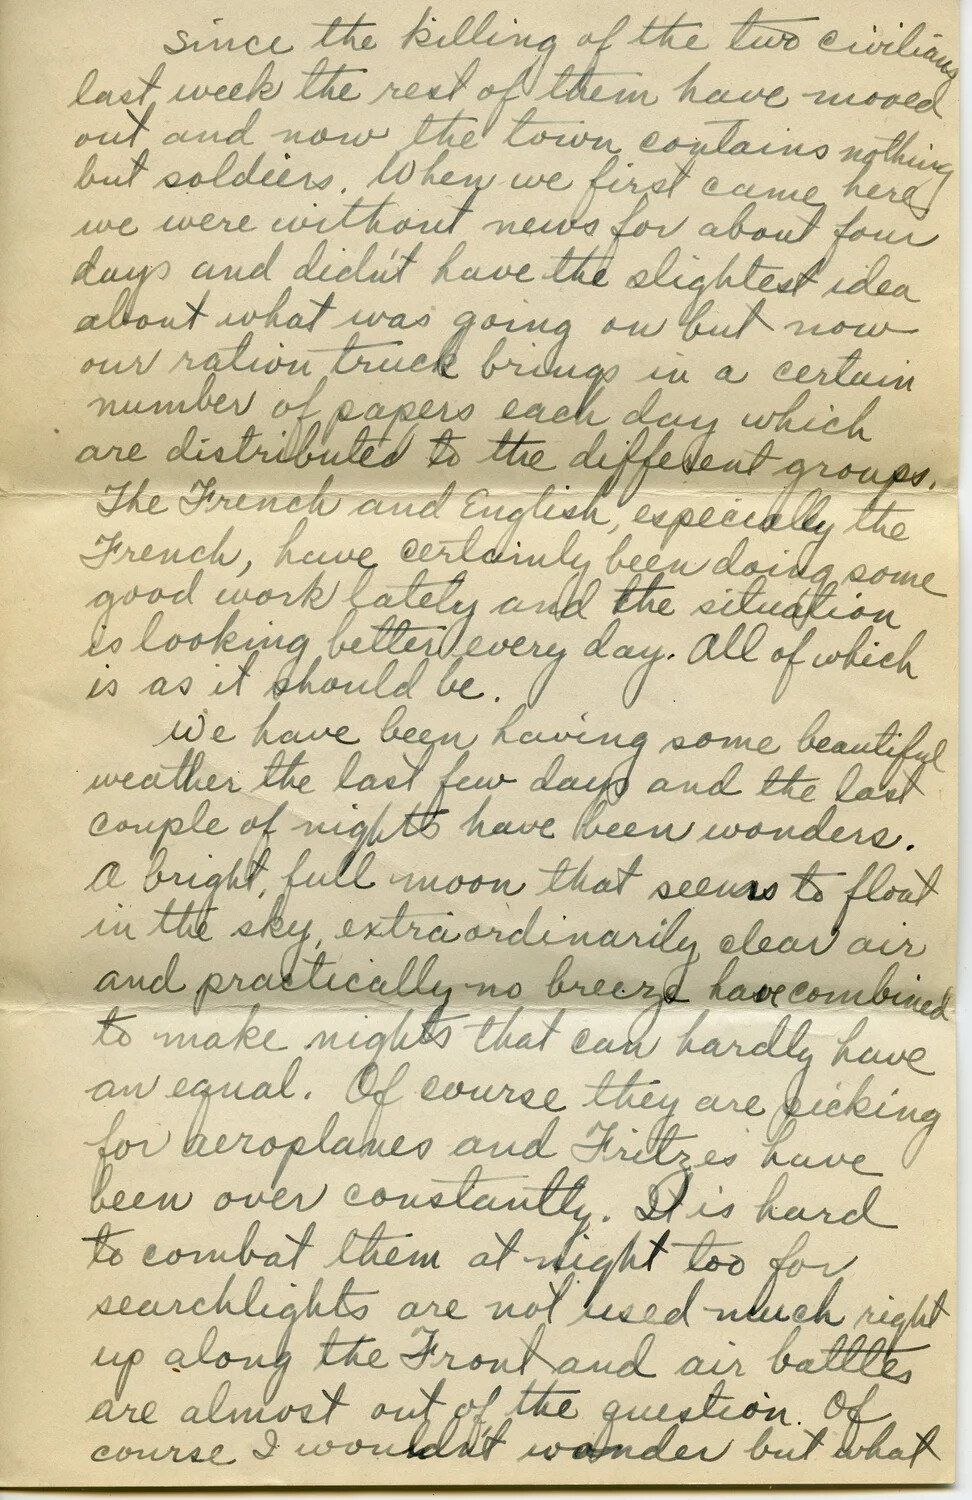 Since the killing of the two civilians
last week the rest of them have moved
out and now the town contains nothing
but soldiers. When we first came here
we were without news for about four
days and didn't have the slightest idea
about what was going on but now
our ration truck brings in a certain
number of papers each day which
are distributed to the different groups.
The French and English, especially the
French, have certainly been doing some
good work lately and the situation
is looking better every day. All of which
is as it should be.
We have been having some beautiful
weather the last few days and the last
couple of nights have been wonders.
A bright, full moon that seems to float
in the sky, extraordinarily clear air
and practically no breeze have combined
to make nights that can hardly have
an equal. Of course they are picking
for aeroplanes and Fritzes have
been over constantly. It is hard
to combat them at night too for
searchlights are not used much right
up along the Front and air battles
are almost out of the question. Of
course I wouldn't wonder but what